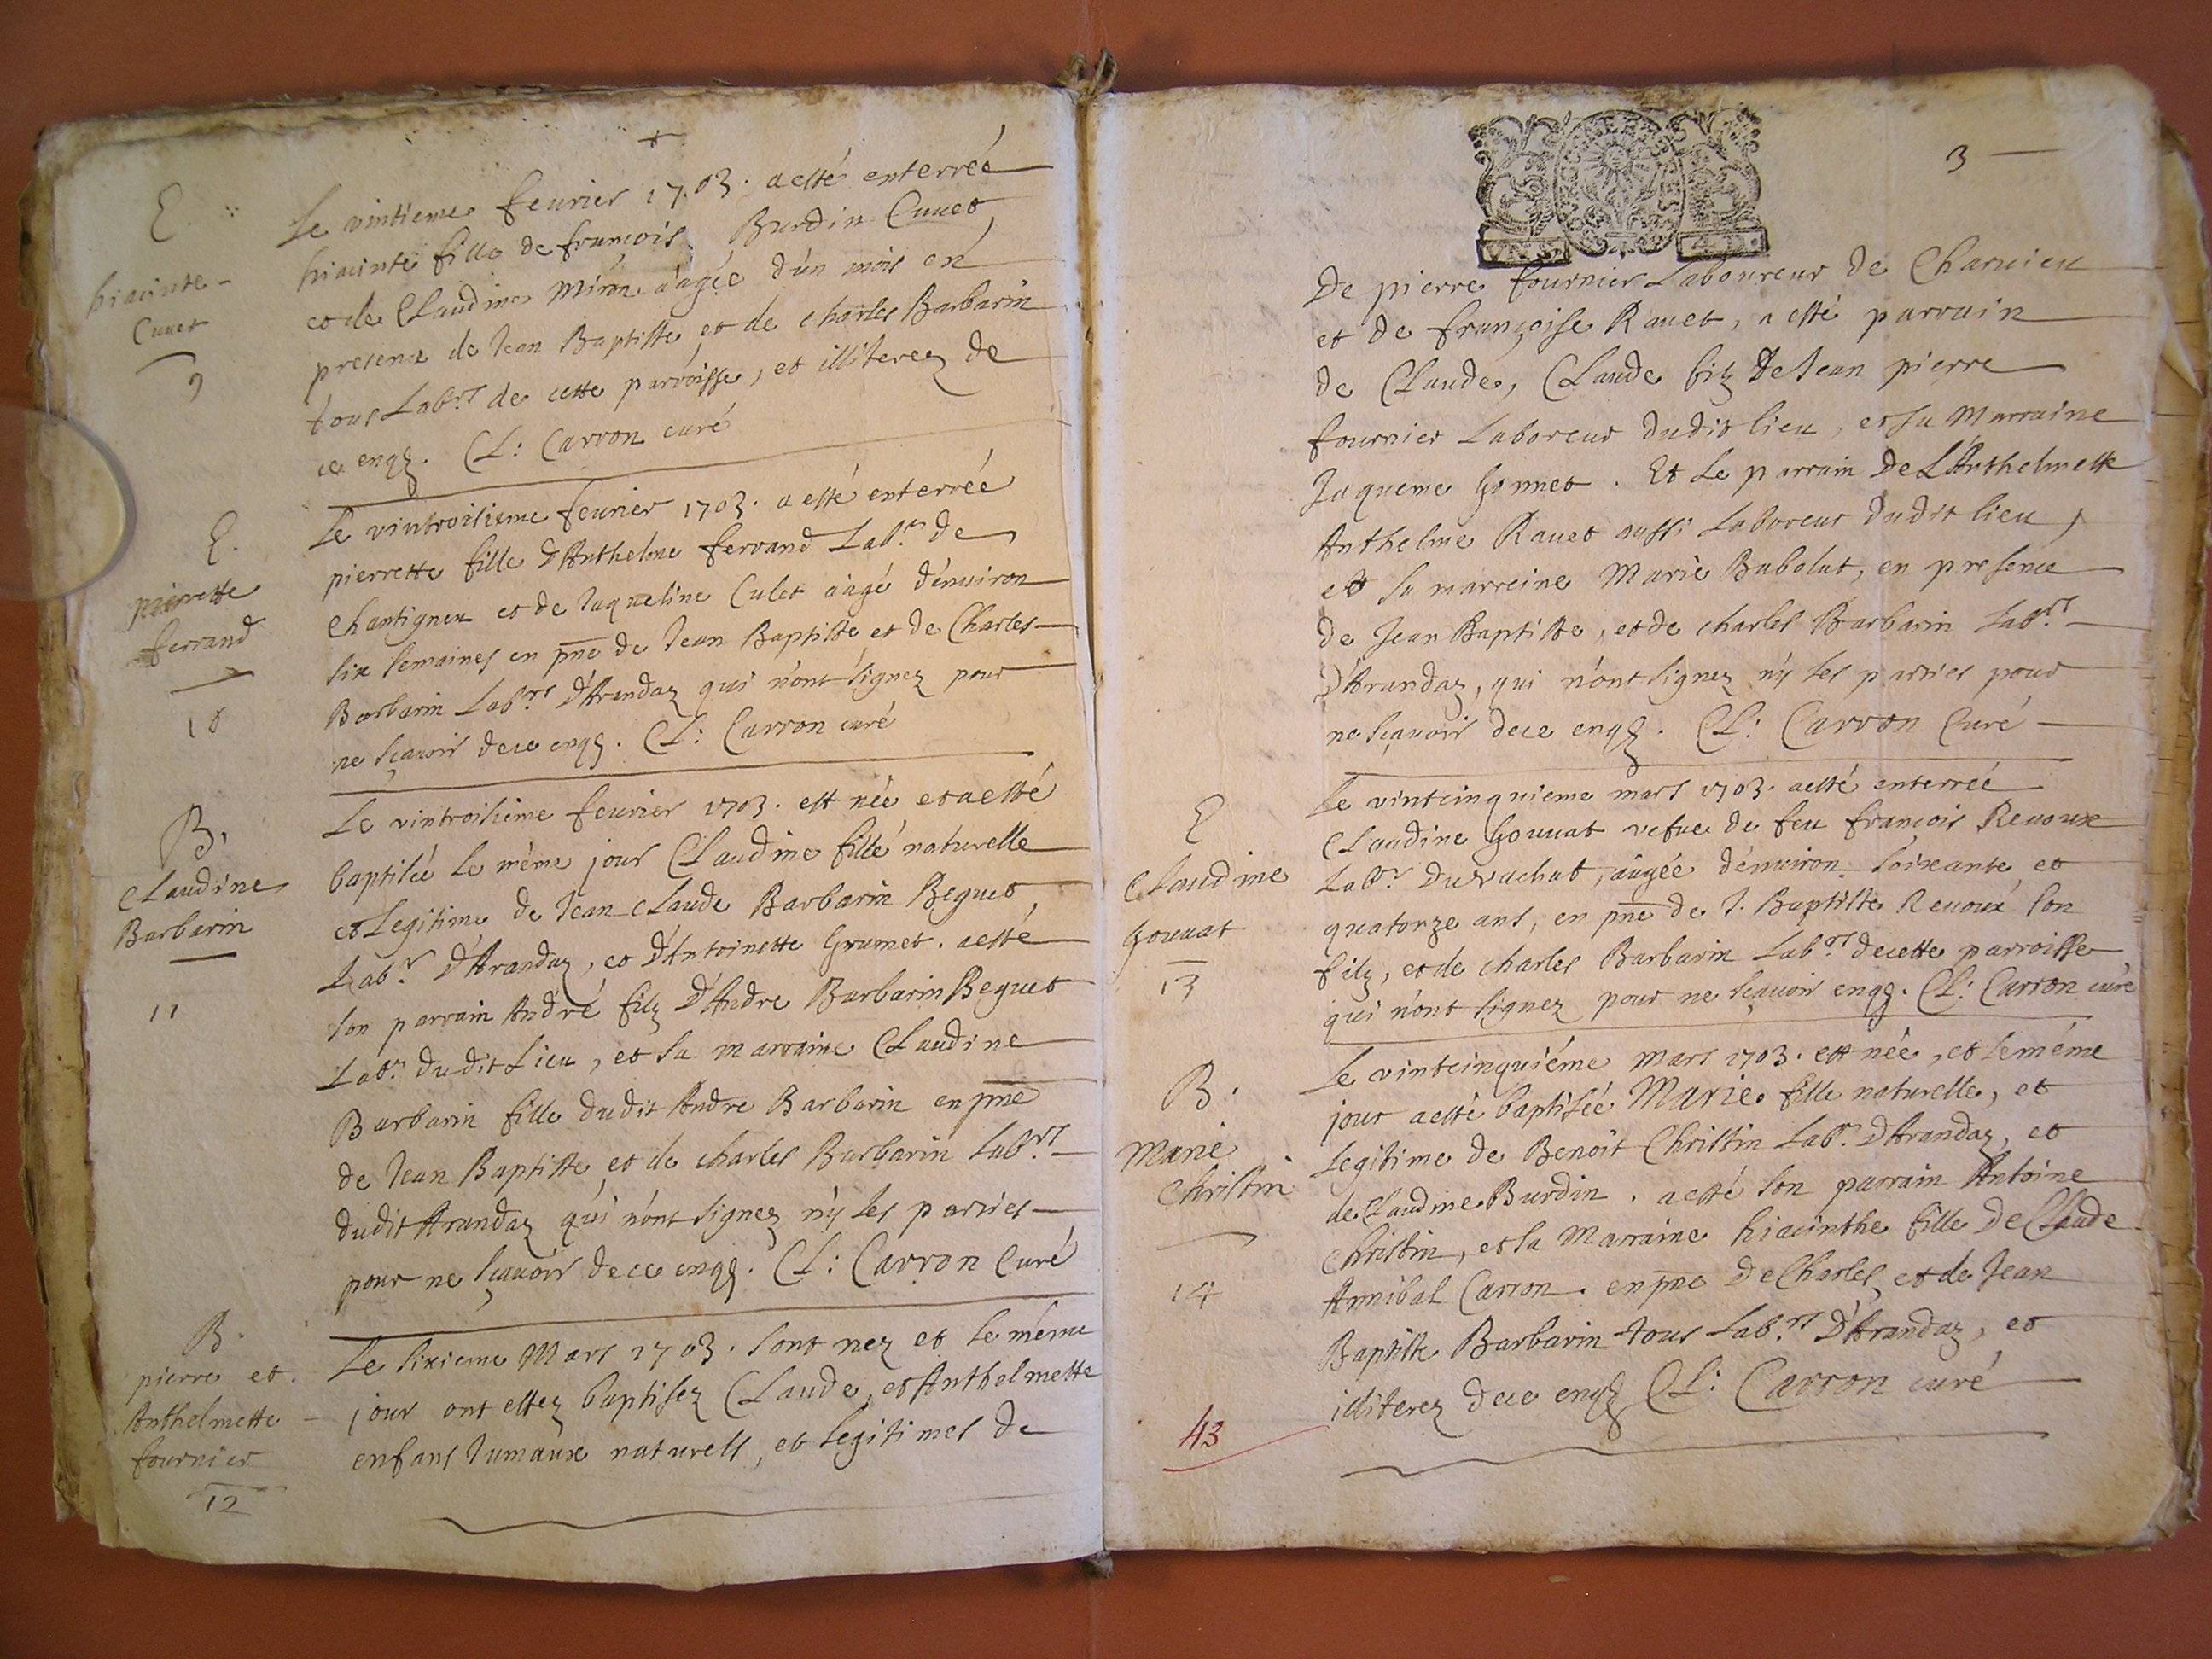 E.
hiacinte
Cuuet
9
Le vintieme feurier 1703. a esté enterreé
hiacinte fille de françois Burdin Cuuet,
et de Claudine âagée d'un mois en
presence de Jean Baptiste et de charles Barbarin
tous Labrs de cette parroisse, et illiterez de
ce enqs. Cl: Carron curé
E.
pierrette
ferrand
10
Le vintroisieme feurier 1703. a esté enterreé
pierrette fille D'Anthelme ferrand Labr. de
Chantigneu et de Jaqueline Culet âagé d'enuiron
six semaines en pne de Jean Baptiste et de Charles
Barbarin Labrs D'Arandaz qui n'ont signez pour
ne sçauoir de ce enqs. Cl: Carron curé
B.
Claudine
Barbarin
11
Le vintroisieme feurier 1703. est née et a esté
baptisée le même jour Claudine fille naturelle
et Legitime de Jean Claude Barbarin Beguet,
Labr. D'Arandaz, et D'Antoinette Grumet. a esté
son parrain André filz D'Andre Barbarin Beguet
Labr. dudit Lieu, et sa marraine Claudine
Barbarin fille dudit Andre Barbarin en pne
de Jean Baptiste, et de charles Barbarin Labrs
dudit Arandaz qui n'ont signez n'y les parties
pour ne sçauoir de ce enqs. Cl: Carron Curé
B.
pierre et
Anthelmette
fournier
12
Le sixieme Mars 1703. sont nez et le même
jour ont estez baptisez Claude, et Anthelmette
enfans Jumaux naturels, et legitimes de
3
De pierre fournier Laboureur de Charuieu
et de françoise Rauet, a esté parrain
de Claude, Claude filz De Jean pierre
fournier Laboreur dudit lieu, et sa Marraine
Jaqueme Gonnet. Et Le parrain De L'Anthelmette
Anthelme Rauet aussi Laboreur dudit lieu,
et sa marreine Marie Babolat, en presence
de Jean Baptiste, et de charles Barbarin Labrs
D'Arandaz, qui n'ont signez n'y les parties pour
ne sçauoir de ce enqs. Cl: Carron Curé
E
Claudine
Gouuat
13
Le vintcinquieme mars 1703. a esté enterreé
Claudine Gouuat vefue de feu françois Reuoux
Labr. du Vachat, âagée d'enuiron soixante et
quatorze ans, en pne de J. Baptiste Reuoux son
filz, et de charles Barbarin Labrs de cette parroisse
qui n'ont signez pour ne sçauoir enqs. Cl: Carron curé
B.
Marie
Christin
14
Le vintcinquiéme Mars 1703. est née, et le méme
jour a esté baptiseé Marie fille naturelle, et
Legitime de Benoit Christin Labr. D'Arandaz, et
de Claudine Burdin. a esté son parrain Antoine
Christin, et sa Marraine hiacinthe fille De Claude
Annibal Carron. en pne De Charles, et de Jean
Baptiste Barbarin tous Labrs D'Arandaz, et
illiterez de ce enqs Cl: Carron curé
43